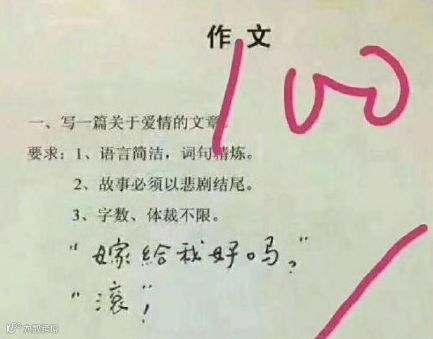 作文
100
一、写一篇关于爱情的文章。
要求：1、语言简洁，词句精炼。
2、故事必须以悲剧结尾。
3、字数、体裁不限。
“嫁給我好吗？”
“滚”！